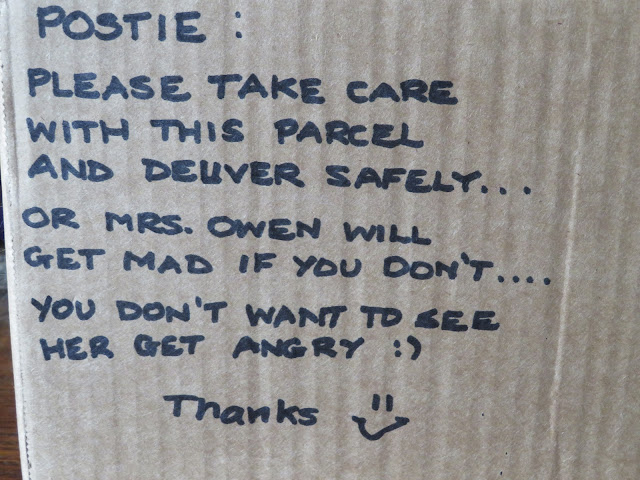 POSTIE :
PLEASE TAKE CARE
WITH THIS PARCEL
AND DELIVER SAFELY...
OR MRS. OWEN WILL
GET MAD IF YOU DON'T....
YOU DON'T WANT TO SEE
HER GET ANGRY :)
Thanks